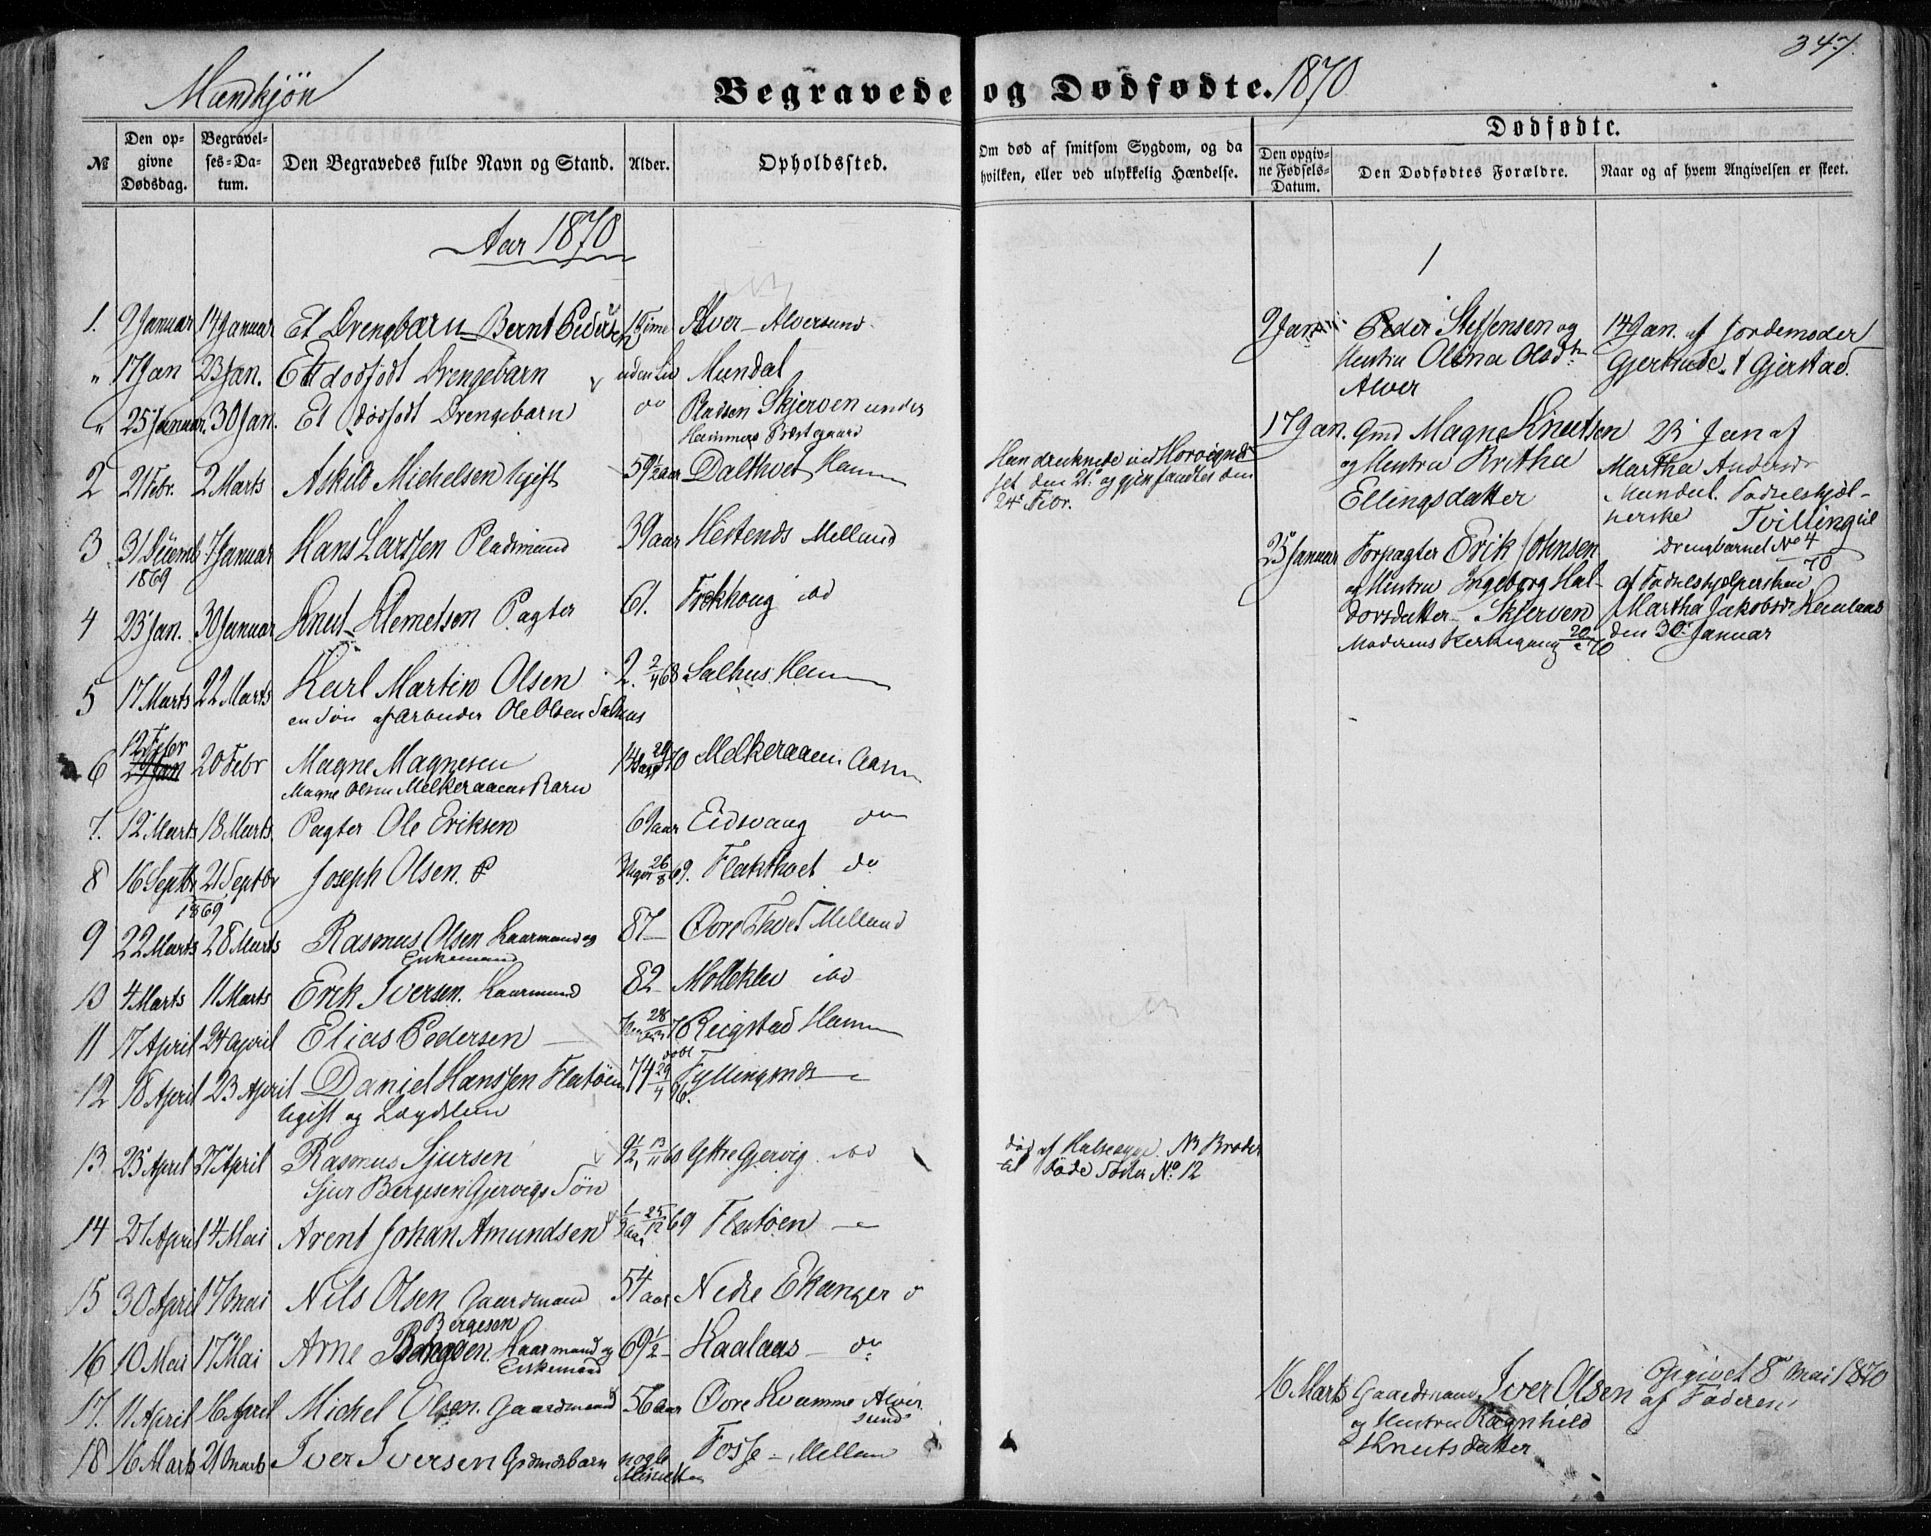 347.
Mandkjön
Begravede og Dødfødte. 1870
№
Den op-
givne
Dødsdag.
Begravel-
ses-Da-
tum.
Den Begravedes fulde Navn og Stand.
Alder.
Opholdssted.
Om død af smitsom Sygdom, og da
hvilken, eller ved ulykkelig Hændelse.
Dødfødte.
Den opgiv-
ne Fødsels-
Datum.
Den Dødfødtes Forældre.
Naar og af hvem Angivelsen er skeet.
Aar 1870
1
1. 9 Januar 14 Januar Et Drengbarn Bernt Pedersen 1 Time Alver Alversund
" 17 Jan 23 Jan. Et dødfødt Drengebarn uden Liv Mundal
" 25 Januar. 30 Jan. Et dødfødt Drengebarn do Pladsen Skjerven under
Hammers Præstegaard
2 21 Febr. 2 Marts Askild Michelsen Ugift 59 1/2 aar Dalthvet Ham
3 31 Decemb 7 Januar Hans Larssen Pladsmand 39 aar Hestenes Melland
1869
4 23 Jan. 30 Januar Knut Klemetsen Pagter 61. Frekhoug ibd
5 17 Marts 22 Marts Karl Martin Olsen 2. 2/4 68 Salhus Ham
en Søn af Arbeider Ole Olsen Salhus
12 Febr
6 20 Febr Magne Magnesen 14 Dage 29/1 70 Melkeraaen Aasen
Magne Olsen Melkeraaens Barn
7. 12 Marts 18 Marts. Pagter Ole Eriksen 69 aar Eidsvaag do
8 16 Septbr 21 Septbr Joseph Olsen. 3 Uger 26/8 69. Flakthvet do
1869
9 22 Marts 28 Marts Rasmus Olsen Kaarmand og 87 Øvre Thvet Melland
Enkemand
10 4 Marts 11 Marts Erik Iversen. Kaarmand 82 Molleklev ibd
11 17 April 24 April Elias Pedersen 28/ 70 Reigstad Ham
12 18 April 23 April Daniel Hanssen Flatöen 74 29/4 96. Fyllingsnes
Ugift og Lægdslem
13. 23 April 27 April Rasmus Sjursen 9 1/2, 13/11 60 Yttre Gjervig ibd
Sjur Bergesen Gjervigs Søn
14 27 April 4 Mai Arent Johan Amundsen 1/3 aar 25/12 69 Flatöen
15 30 April 17 Mai Nils Olsen Gaardmand 54 aar Nedre Ekanger
Bergesen
16 10 Mai 17 Mai Arne Kaarmand og 69 1/2 Haalaas do
Enkemand
17. 11 April 16 April Michel Olsen. Gaardmand 56 aar Øvre Kvamme Alver
sund
18 16 Marts 21 Marts Iver Iversen Grdmdsbarn nogle Fosse Melland
Minutter
Han druknede ved Horvignes-
set den 21. og gjenfandtes den
24. Febr.
død af Halssyge. NB Broder
til døde Søster No. 12
9 Jan Peder Steffensen og
Hustru Olina Olsdtr
Alver
14 Jan. af Jordemoder
Gjertrude Gjerstad.
17 Jan. Gmd Magne Knutsen
og Hustru Britha
Ellingsdatter
23 Jan af
Martha Andersdr
Mundal. Fødselshjæl-
perske Tvilling til
Drengbarnet No 4
70
25 Januar Forpagter Erik Johnsen
og Hustru Ingeborg Hal-
dorsdatter Skjerven
Moderens Kirkegang 20/ 70
af Fødselshjælpersken
Martha Jakobsdr
den 30 Januar
16 Marts Gaardmand Iver Olsen
og Hustru Ragnhild
Knutsdatter
Opgivet 8 Mai 1870
af Faderen